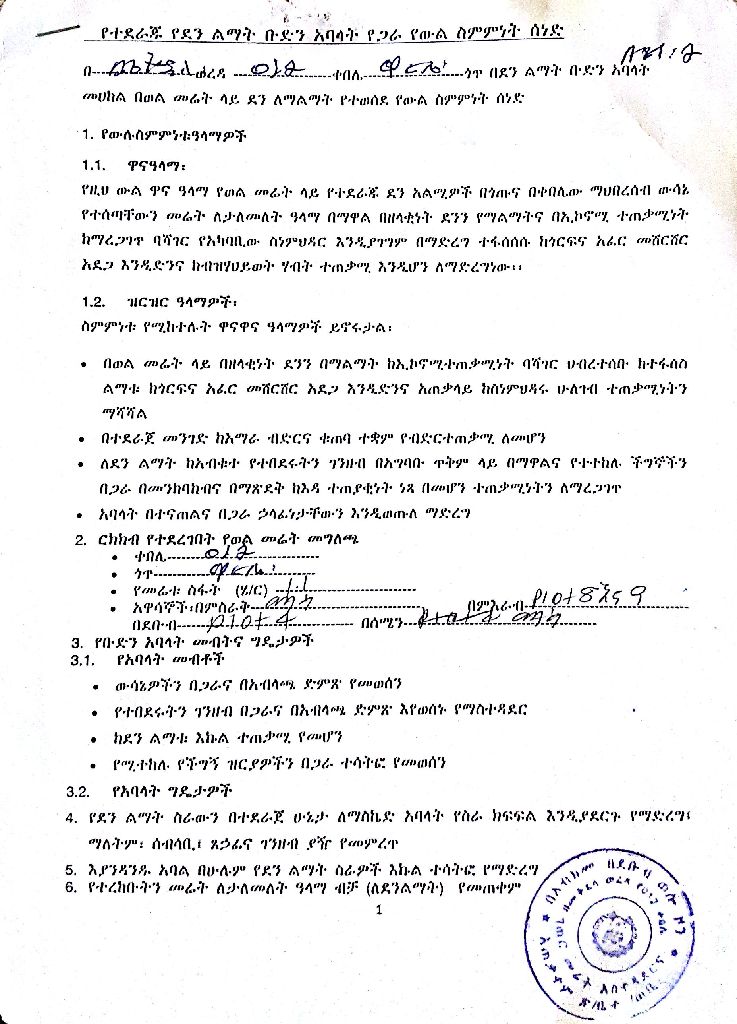 የተደራጁ የደን ልማት ቡድን አባላት የጋራ የውል ስምምነት ሰነድ
በ ወረዳ 012 ቀበሌ ጎጥ በደን ልማት ቡድን አባላት
መሀከል በወል መሬት ላይ ደን ለማልማት የተወሰደ የውል ስምምነት ሰነድ
1. የውሉስምምነቱዓላማዎች
1.1. ዋናዓላማ፡
የዚህ ውል ዋና ዓላማ የወል መሬት ላይ የተደራጁ ደን አልሚዎች በጎጡና በቀበሌው ማህበረሰብ ውሳኔ
የተሰጣቸውን መሬት ለታለመለት ዓላማ በማዋል በዘላቂነት ደንን የማልማትና በኢኮኖሚ ተጠቃሚነት
ከማረጋገጥ ባሻገር የአካባቢው ስነምህዳር እንዲያገግም በማድረግ ተፋሰሰሱ ከጎርፍና አፈር መሸርሸር
አደጋ እንዲድንና ከብዝሃህይወት ሃብት ተጠቃሚ እንዲሆን ለማድረግነው፡፡
1.2. ዝርዝር ዓላማዎች፡
ስምምነቱ የሚከተሉት ዋናዋና ዓላማዎች ይኖሩታል፡
• በወል መሬት ላይ በዘላቂነት ደንን በማልማት ከኢኮኖሚተጠቃሚነት ባሻገር ህብረተሰቡ ከተፋሰስ
ልማቱ ከጎርፍና አፈር መሸርሸር አደጋ እንዲድንና አጠቃላይ ከስነምህዳሩ ሁለገብ ተጠቃሚነትን
ማሻሻል
• በተደራጀ መንገድ ከአማራ ብድርና ቁጠባ ተቋም የብድርተጠቃሚ ለመሆን
• ለደን ልማት ከአብቁተ የተበደሩትን ገንዘብ በአግባቡ ጥቅም ላይ በማዋልና የተተከሉ ችግኞችን
በጋራ በመንከባከብና በማጽደቅ ከእዳ ተጠያቂነት ነጻ በመሆን ተጠቃሚነትን ለማረጋገጥ
• አባላት በተናጠልና በጋራ ኃላፊነታቸውን እንዲወጡለ ማድረግ
2. ርክክብ የተደረገበት የወል መሬት መግለጫ
• ቀበሌ 012
• ጎጥ
• የመሬቱ ስፋት (ሄ/ር) 1.1
• አዋሳኞች፡በምስራቅ በምእራብ
በደቡብ በሰሜን
3. የቡድን አባላት መብትና ግዴታዎች
3.1. የአባላት መብቶች
• ውሳኔዎችን በጋራና በአብላጫ ድምጽ የመወሰን
• የተበደሩትን ገንዘብ በጋራና በአብላጫ ድምጽ እየወሰኑ የማስተዳደር
• ከደን ልማቱ እኩል ተጠቃሚ የመሆን
• የሚተከሉ የችግኝ ዝርያዎችን በጋራ ተሳትፎ የመወሰን
3.2. የአባላት ግዴታዎች
4. የደን ልማት ስራውን በተደራጀ ሁኔታ ለማስኬድ አባላት የስራ ክፍፍል እንዲያደርጉ የማድረግ፤
ማለትም፡ ሰብሳቢ፤ ጸኃፊና ገንዘብ ያዥ የመምረጥ
5. እያንዳንዱ አባል በሁሉም የደን ልማት ስራዎች እኩል ተሳትፎ የማድረግ
6. የተረከቡትን መሬት ለታለመለት ዓላማ ብቻ (ለደንልማት) የመጠቀም
1